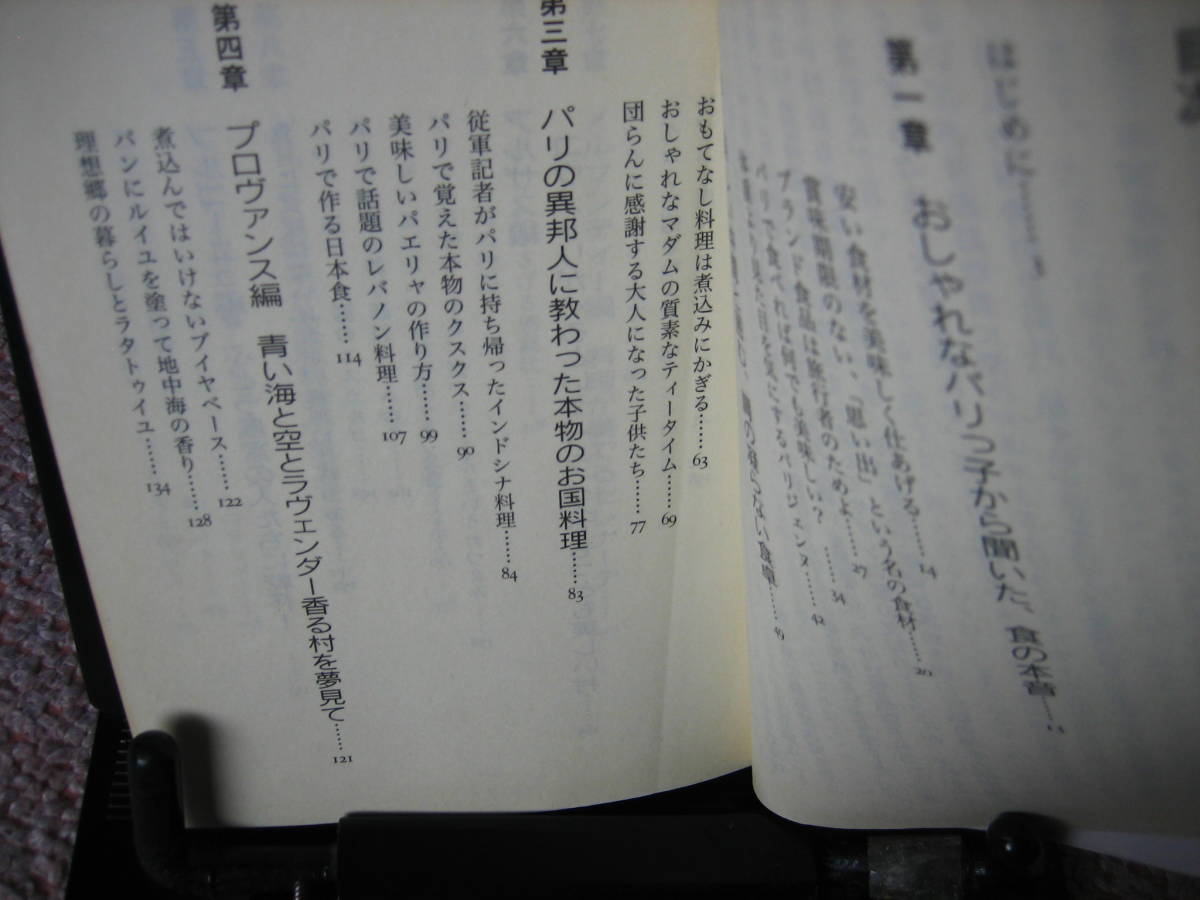 目次
はじめに……8
第一章　おしゃれなパリっ子から聞いた、食の本音……
安い食材を美味しく仕あげる……14
賞味期限のない、「思い出」という名の食材……20
ブランド食品は旅行者のためよ……27
パリで食べれば何でも美味しい？……34
見た目を気にするパリジェンヌ……42
食卓……49
おもてなし料理は煮込みにかぎる……63
おしゃれなマダムの質素なティータイム……69
団らんに感謝する大人になった子供たち……77
第三章　パリの異邦人に教わった本物のお国料理……83
従軍記者がパリに持ち帰ったインドシナ料理……84
パリで覚えた本物のクスクス……90
美味しいパエリャの作り方……99
パリで話題のレバノン料理……107
パリで作る日本食……114
第四章　プロヴァンス編　青い海と空とラヴェンダー香る村を夢見て……121
煮込んではいけないブイヤベース……122
パンにルイユを塗って地中海の香り……128
理想郷の暮らしとラタトゥイユ……134